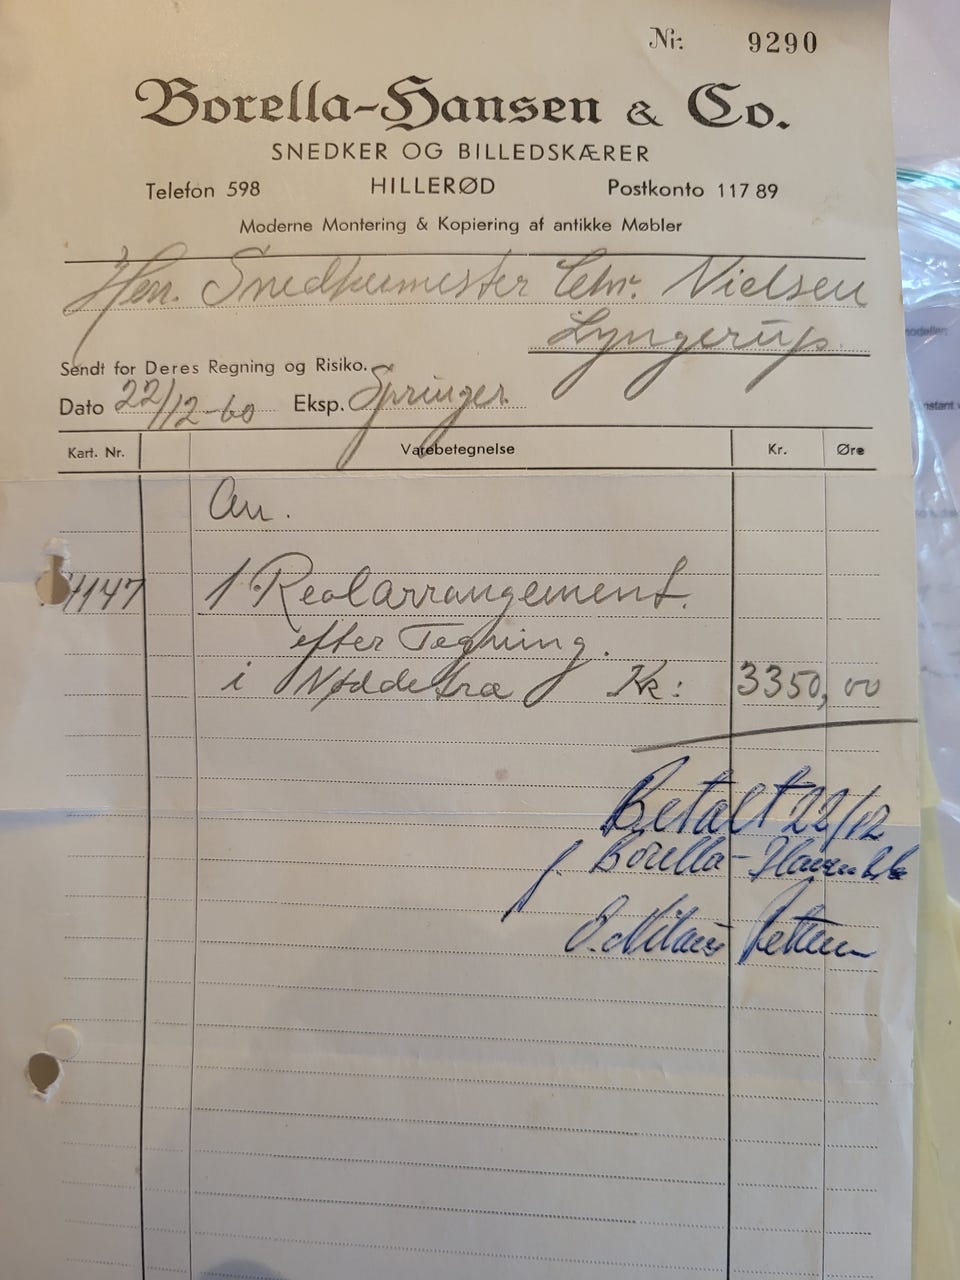 Nr. 9290
Borella-Hansen & Co.
SNEDKER OG BILLEDSKÆRER
Telefon 598 HILLERØD Postkonto 117 89
Moderne Montering & Kopiering af antikke Møbler
Herr. Snedkermester Chr. Nielsen
Lyngerup.
Sendt for Deres Regning og Risiko.
Dato 22/12-60 Eksp. Springer.
Kart. Nr. Varebetegnelse Kr. Øre
An.
1 Reolarrangement.
efter Tegning.
i Nøddetræ Kr: 3350,00
Betalt 22/12
f. Borella-Hansen